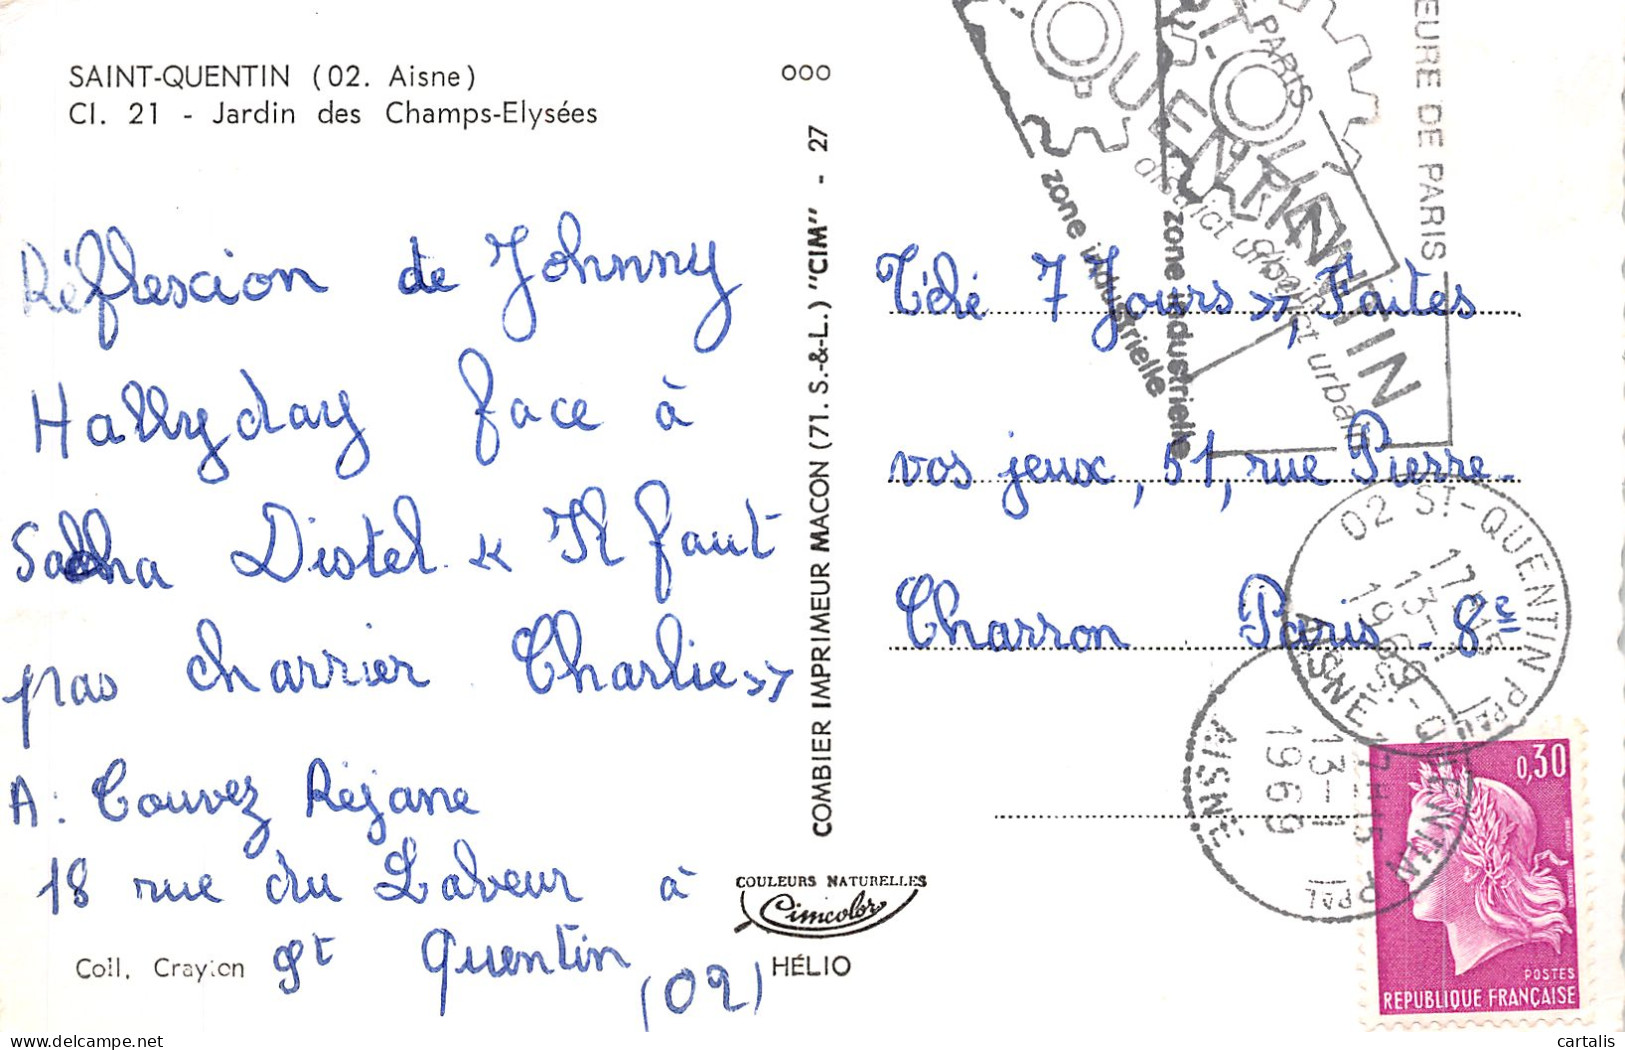 SAINT-QUENTIN (02. Aisne)
Cl. 21 - Jardin des Champs-Elysées
Réflexcion de Johnny
Hallyday face à
Sacha Distel. « Il faut
pas charrier Charlie »
A : Couvez Réjane
18 rue du Labeur à
St Quentin
(02)
Coll. Crayion
000
COMBIER IMPRIMEUR MACON (71. S.-&-L.) "CIM" - 27
COULEURS NATURELLES
Cimcolor
HÉLIO
Télé 7 Jours », Faites
vos jeux, 51, rue Pierre-
Charron Paris 8e
EURE DE PARIS
PARIS
QUENTIN
district urbain
zone industrielle
QUENTIN
district urbain
zone industrielle
02 ST-QUENTIN PPAL
17H15
13-1
1969
AISNE
ST-QUENTIN PPAL
17H15
13-1
1969
AISNE
0,30
POSTES
REPUBLIQUE FRANÇAISE
cartalis